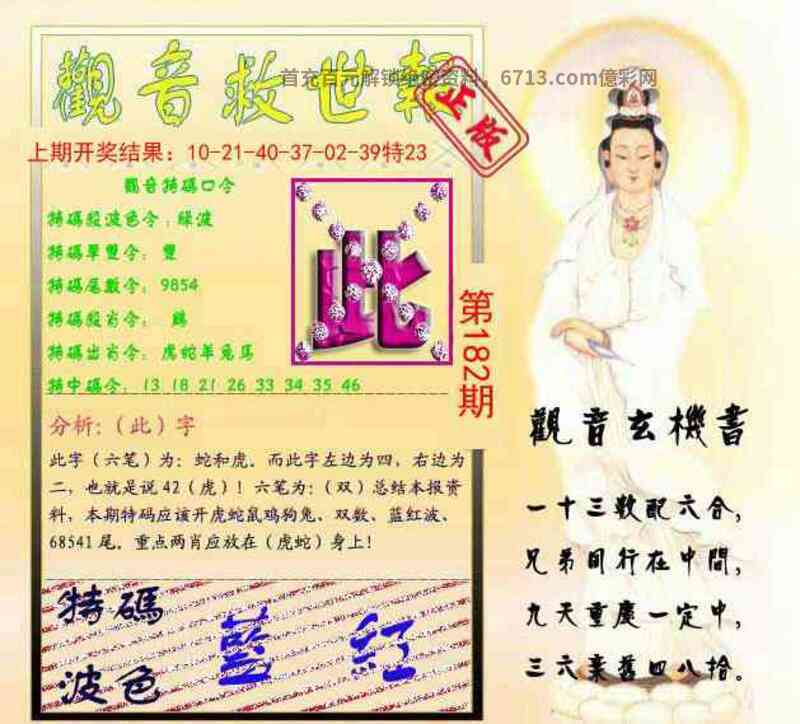 觀音救世報
首充百元解锁绝密资料，6713.com億彩网
正版
上期开奖结果：10-21-40-37-02-39特23
觀音特碼口令
特碼殺波色令：綠波
特碼單雙令：雙
特碼尾數令：9854
特碼殺肖令：鷄
特碼出肖令：虎蛇羊兔馬
特中碼令：13 18 21 26 33 34 35 46
此
第182期
分析:（此）字
此字（六笔）为：蛇和虎。而此字左边为四，右边为
二，也就是说42（虎）！六笔为:（双）总结本报资
料，本期特码应该开虎蛇鼠鸡狗兔、双数、蓝红波、
68541尾。重点两肖应放在（虎蛇）身上！
特碼
波色
藍紅
觀音玄機書
一十三數配六合，
兄弟同行在中間，
九天重慶一定中，
三六棄舊四八拾。